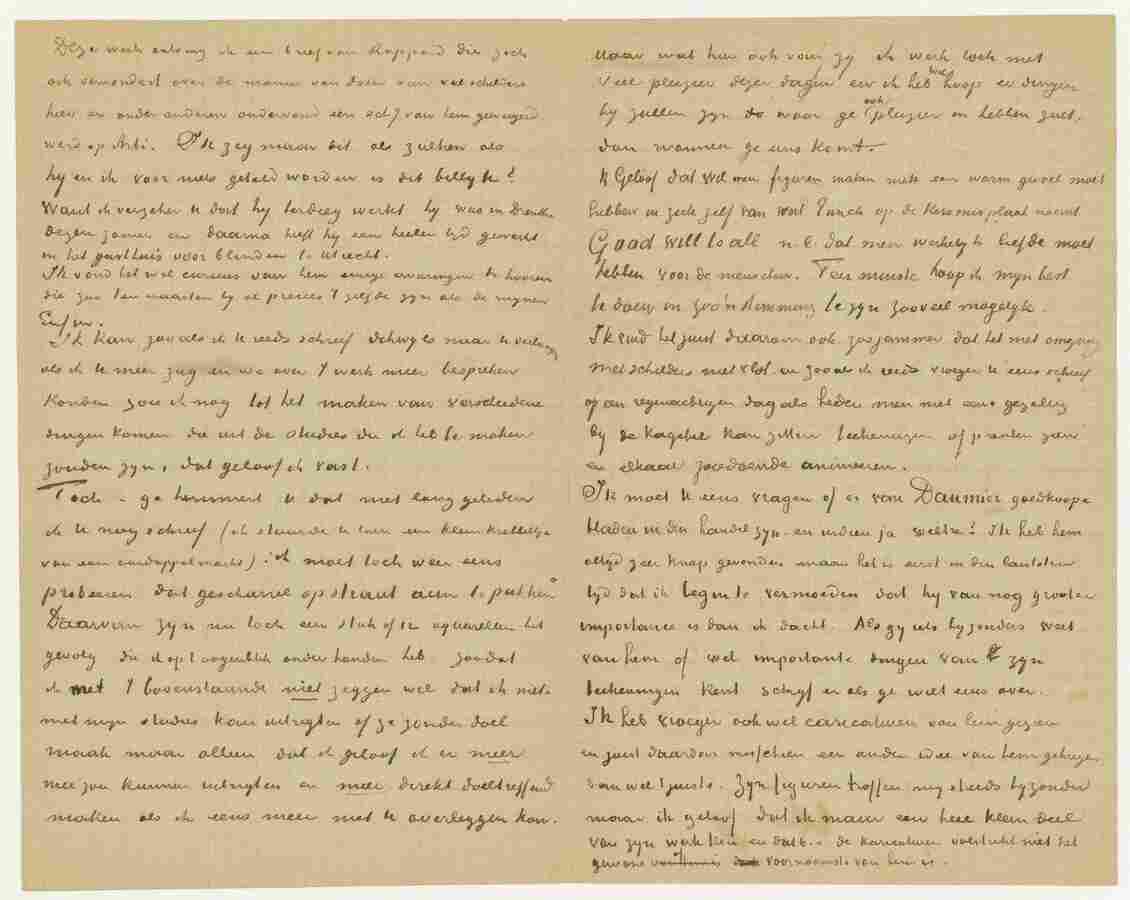 Deze week ontving ik een brief van Rappard die zich
ook verwondert over de manier van doen van veel schilders
hier en onder anderen ondervond een schij van hem geweigerd
werd op Arti. Ik zeg maar dit als zulken als
hij en ik voor niets geteld worden is dit billijk?
Want ik verzeker U dat hij terdeeg werkt hij was in Drenthe
dezen zomer en daarna heeft hij een heelen tijd gewerkt
in het gasthuis voor blinden te Utrecht.
Ik vond het wel curieus van hem eenige ervaringen te hooren
die zoo ten naasten bij al precies 't zelfde zijn als de mijnen
Enfin.
Ik kan zooals ik U reeds schreef dikwijls naar U verlangen
als ik U meer zag en we over 't werk meer bespreken
konden zou ik nog tot het maken van verscheidene
dingen komen die uit de studies die ik heb te maken
zouden zijn, dat geloof ik vast.
Toch - ge herinnert U dat niet lang geleden
ik U nog schreef (ik stuurde U toen een klein krabbeltje
van een aardappelmarkt): "ik moet toch weer eens
probeeren dat gescharrel op straat aan te pakken"
Daarvan zijn nu toch een stuk of 12 aquarellen het
gevolg die ik op 't oogenblik onder handen heb. zoodat
ik met 't bovenstaande niet zeggen wil dat ik niets
met mijn studies kan uitregten of ze zonder doel
maak maar alleen dat ik geloof ik er meer
mee zou kunnen uitrigten en meer direkt doeltreffend
maken als ik eens meer met U overleggen kon.
Maar wat hier ook van zij ik werk toch met
veel pleizier dezer dagen en ik heb wel hoop er dingen
bij zullen zijn daar waar ge ook pleizier in hebben zult,
dan wanneer ge eens komt.
Ik Geloof dat wil men figuren maken men een warm gevoel moet
hebben in zich zelf van wat Punch op de Kersmisplaat noemt
Good will to all n.l. dat men werkelijk liefde moet
hebben voor de menschen. Ten minste hoop ik mijn best
te doen in zoo'n stemming te zijn zooveel mogelijk.
Ik vind het juist daarom ook zoo jammer dat het met omgang
met schilders niet vlot en zooals ik reeds vroeger U eens schreef
op een regenachtigen dag als heden men niet eens gezellig
bij de kagchel kan zitten teekeningen of prenten zien
en elkaar zoodoende animeren.
Ik moet U eens vragen of er van Daumier goedkoope
bladen in den handel zijn en indien ja welke? Ik heb hem
altijd zeer knap gevonden maar het is eerst in den laatsten
tijd dat ik begin te vermoeden dat hij van nog grooter
importance is dan ik dacht. Als gij iets bijzonders weet
van hem of wel importante dingen van zijn
teekeningen kent schrijf er als ge wilt eens over.
Ik heb vroeger ook wel caricaturen van hem gezien
en juist daardoor misschien een ander idee van hem gekregen
dan wel 't juiste. Zijn figuren troffen mij steeds bijzonder
maar ik geloof dat ik maar een heel klein deel
van zijn werk ken en dat b.v. de karicatuur volstrekt niet het
gewone voornaamste van hem is.